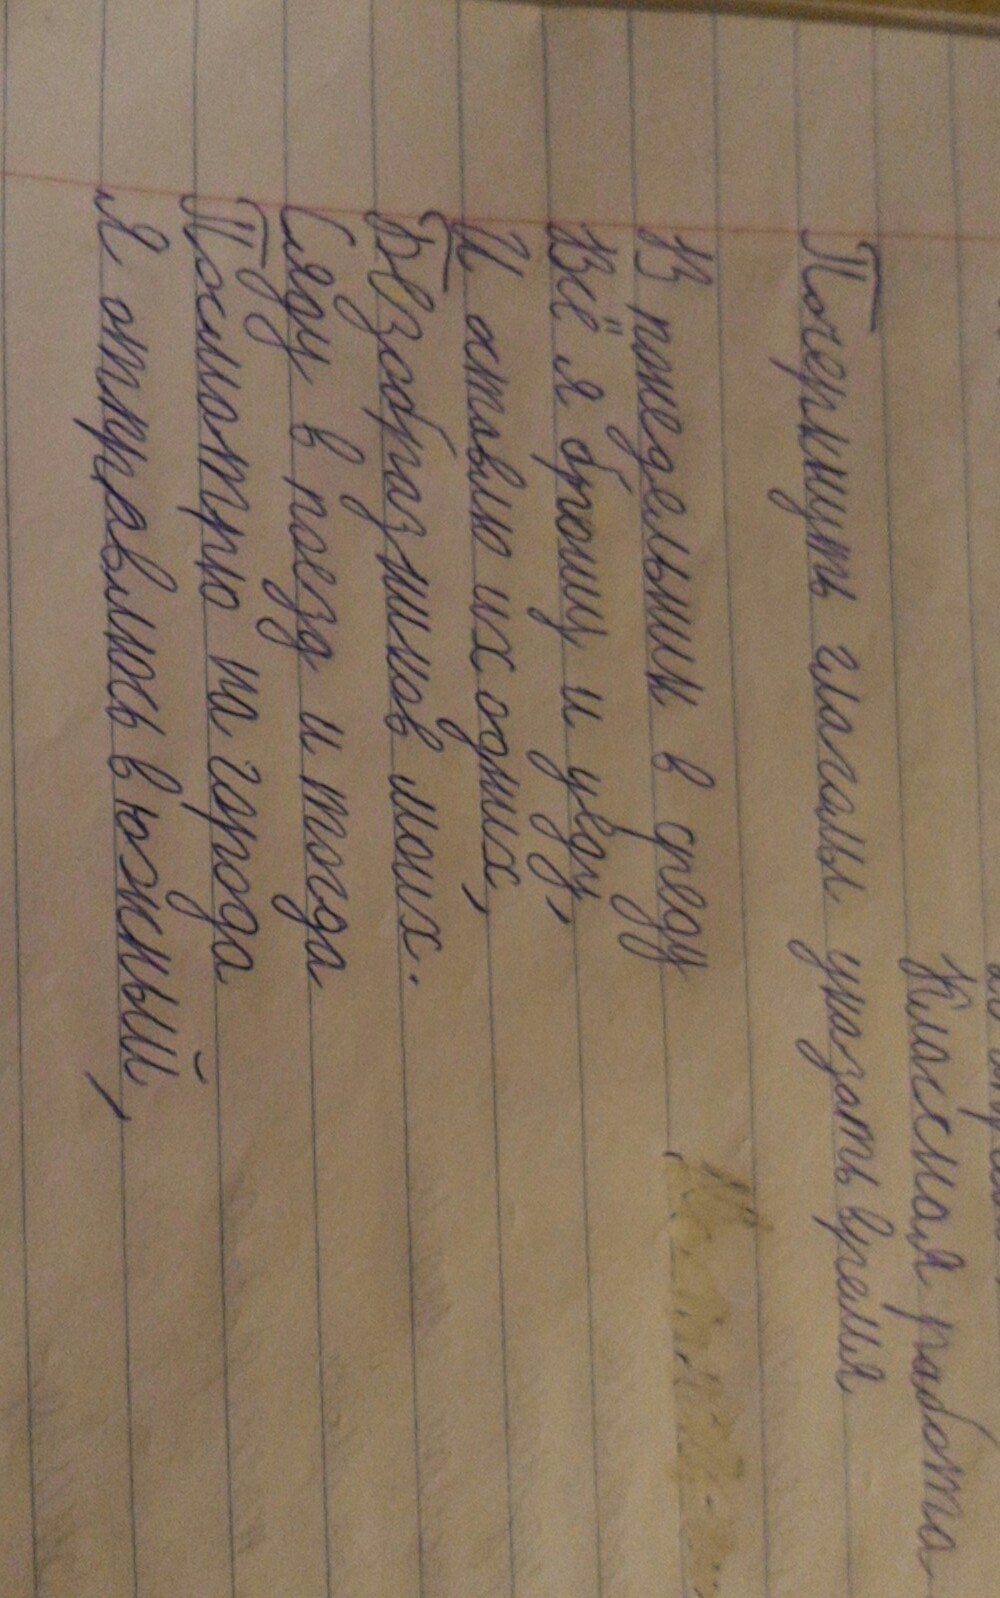 Классная работа
Почеркнуть глаголы указать время
В понедельник в среду
Всё я брошу и уеду,
И оставлю их одних,
Безобразников моих.
Сяду в поезд и тогда
Посмотрю на города
Я отправлюсь в южный,